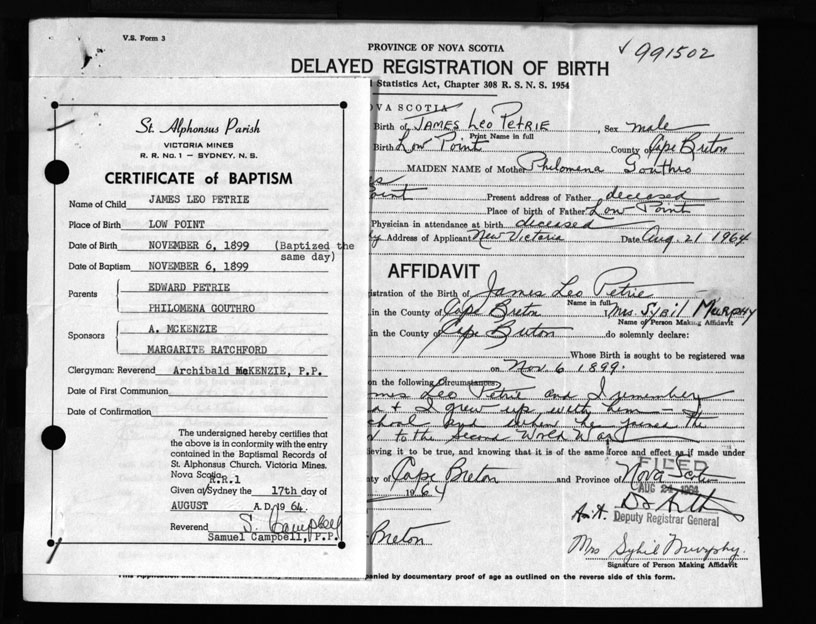 V.S. Form 3
991502
PROVINCE OF NOVA SCOTIA
DELAYED REGISTRATION OF BIRTH
Statistics Act, Chapter 308 R. S. N. S. 1954
St. Alphonsus Parish
VICTORIA MINES
R. R. No. 1 – SYDNEY, N. S.
CERTIFICATE OF BAPTISM
Name of Child JAMES LEO PETRIE
Place of Birth LOW POINT
Date of Birth NOVEMBER 6, 1899 (Baptized the
same day)
Date of Baptism NOVEMBER 6, 1899
Parents EDWARD PETRIE
PHILOMENA GOUTHRO
Sponsors A. MCKENZIE
MARGARITE RATCHFORD
Clergyman: Reverend Archibald McKENZIE, P.P.
Date of First Communion
Date of Confirmation
The undersigned hereby certifies that
the above is in conformity with the entry
contained in the Baptismal Records of
St. Alphonsus Church, Victoria Mines.
Nova Scotia.
R.R.1
Given at/Sydney the 17th day of
AUGUST A.D. 1964.
Reverend S. Campbell
Samuel Campbell, P.P.
OVA SCOTIA
Birth of JAMES Leo PETRIE, Sex male
Print Name in full
Birth Low Point County of Cape Breton
MAIDEN NAME of Mother Philomena Gouthro
Point Present address of Father deceased
Place of birth of Father Low Point
Physician in attendance at birth deceased
Address of Applicant New Victoria Date Aug. 21 1964
AFFIDAVIT
istration of the Birth of James Leo Petrie
Name in full
in the County of Cape Breton, Mrs. Sybil Murphy
Name of Person Making Affidavit
in the County of Cape Breton do solemnly declare:
Whose Birth is sought to be registered was
on Nov. 6 1899.
on the following Circumstances:
Leo Petrie and I remember
& I grew up with him — The
when he joined the
to the Second World War
ieving it to be true, and knowing that it is of the same force and effect as if made under
ty of Cape Breton and Province of Nova Scotia
FILED
AUG 24 1964
1964
Deputy Registrar General
Breton
Mrs Sybil Murphy.
Signature of Person Making Affidavit
panied by documentary proof of age as outlined on the reverse side of this form.